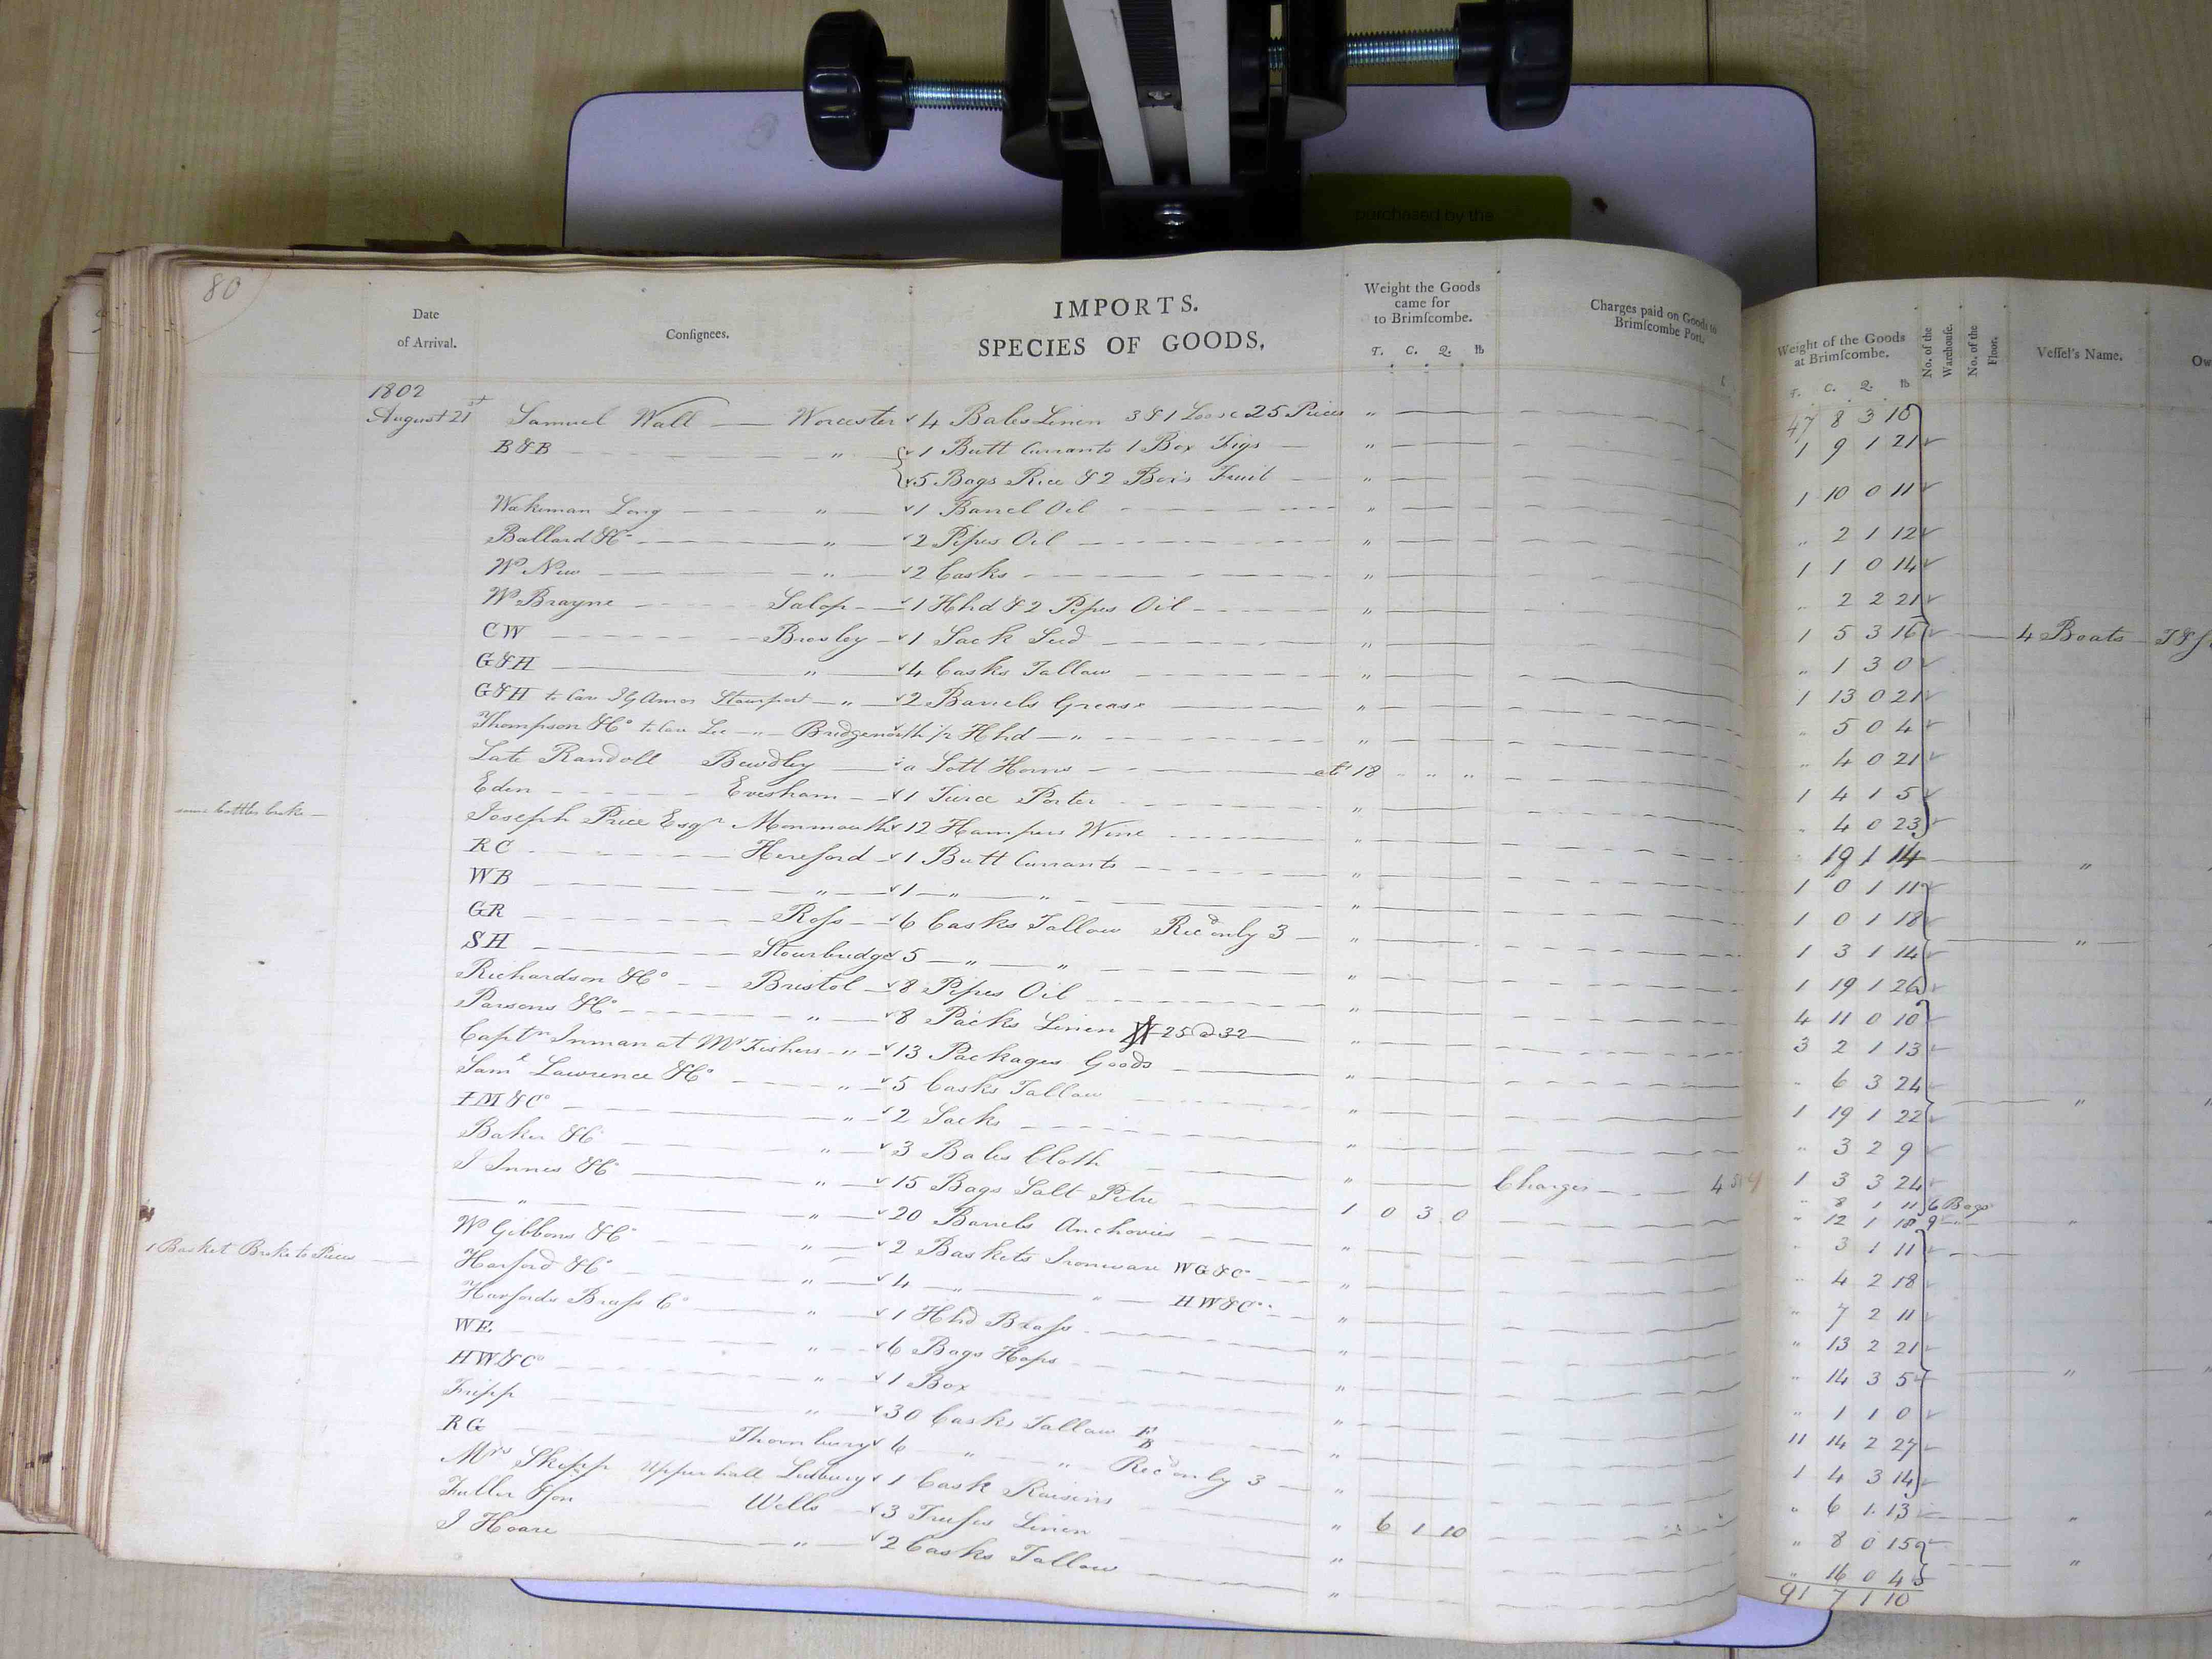 purchased by the
80
IMPORTS.
Date of Arrival. Consignees. SPECIES OF GOODS. Weight the Goods came for to Brimscombe. Charges paid on Goods to Brimscombe Port. Weight of the Goods at Brimscombe. No. of the Warehouse. No. of the Floor. Vessel's Name. Ow
T. C. Q. lb T. C. Q. lb
1802
August 21st Samuel Wall — Worcester 4 Bales Linen 3 & 1 Loose 25 Pieces " 47 8 3 10
B&B " 1 Butt Currants 1 Box Figs " 1 9 1 21
5 Bags Rice & 2 Boxs Fruit " 1 10 0 11
Wakeman Long " 1 Barrel Oil " " 2 1 12
Ballard & Co " 2 Pipes Oil " 1 1 0 14
Wm New " 2 Casks " 2 2 21
Wm Brayne Salop 1 Hhd & 2 Pipes Oil " 1 5 3 16 4 Boats
CW Brosley 1 Sack Seed " " 1 3 0
G&H " 4 Casks Tallow " 1 13 0 21
G&H to Care Amos Stourport " 2 Barrels Grease " " 5 0 4
Thompson & Co to Care Lee " Bridgenorth 1/2 Hhd " " " 4 0 21
Late Randoll Bewdley a Lott Horns ct 18 " " " 1 4 1 5
Eden Evesham 1 Tierce Porter " " 4 0 23
some bottles broke Joseph Price Esqr Monmouth 12 Hampers Wine " 19 1 14 "
RC Hereford 1 Butt Currants " 1 0 1 11
WB " 1 " " " 1 0 1 18
GR Ross 6 Casks Tallow Recd only 3 " 1 3 1 14 "
SH Stourbridge 5 " " " 1 19 1 26
Richardson & Co Bristol 8 Pipes Oil " 4 11 0 10
Parsons & Co " 8 Packs Linen 25 @ 32 " 3 2 1 13
Captn Inman at Mr Fishers " 13 Packages Goods " " 6 3 24
Saml Lawrence & Co " 5 Casks Tallow " 1 19 1 22 "
IM&Co " 2 Sacks " " 3 2 9
Baker & Co " 3 Bales Cloth " Charges 4 1 3 3 24
J Innes & Co " 15 Bags Salt Petre 1 0 3 0 " 8 1 11 6 Bags
" 12 1 18 9 " "
" " 20 Barrels Anchovies " " 3 1 11
Wm Gibbons & Co " 2 Baskets Ironware WG&Co " " 4 2 18
1 Basket Broke to Pieces Harford & Co " 4 " " HW&Co " " 7 2 11
Harfords Brass Co " 1 Hhd Brass " " 13 2 21
WE " 6 Bags Hops " " 14 3 5 "
HW&Co " 1 Box " " 1 1 0
Fripp " 30 Casks Tallow F B " 11 14 2 27
RG Thornbury 6 " " Recd only 3 " 1 4 3 14
Mrs Skipp Upper hall Ledbury 1 Cask Raisins " 6 1 10 " 6 1 13 "
Fuller & Son Wells 3 Trusses Linen " " 8 0 15 "
J Hoare " 2 Casks Tallow " " 16 0 4
91 7 1 10